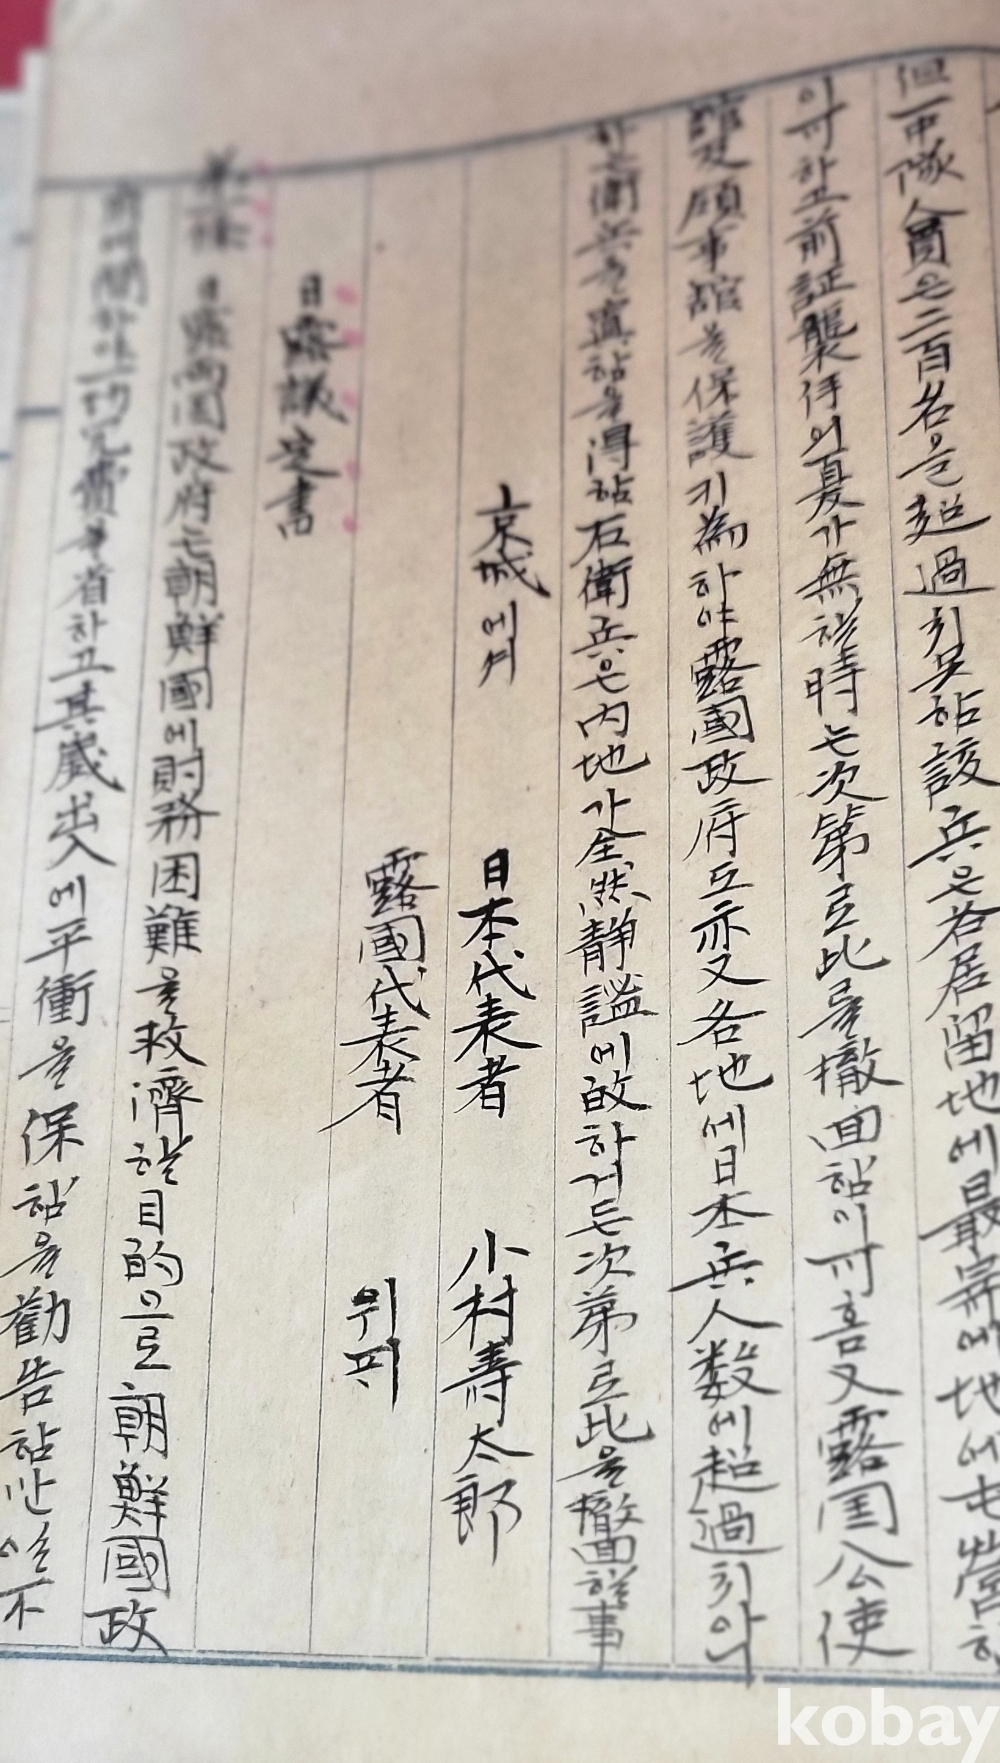 但一中隊人員은二百名을超過치못함該兵은各居留地에最寄에地에屯營하
이可하고前記襲侍의憂가無할時는次第로此를撤回함이可홈又露国公使
館及領事館을保護키為하야露國政府도亦又各地에日本兵人数에超過치아니
하는衛兵을置함을得함右衛兵은內地가全然静謐에故하거든次第로此을撤回할事
京城에셔
日本代表者 小村寿太郎
露國代表者 위피
日露議定書
第一條 日露両国政府는朝鮮國에財務困難을救済할目的으로朝鮮國政
府에開하야一切冗費를省하고其歲出入에平衝을保함을勸告함만일不
kobay